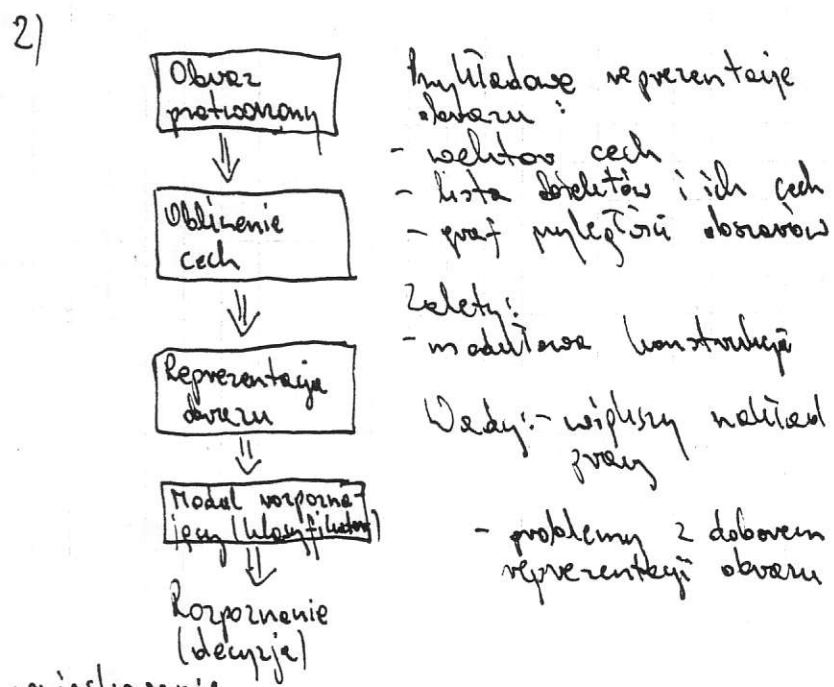 2)
Obraz
przetworzony
Obliczenie
cech
Reprezentacja
obrazu
Moduł rozpozna-
jący (klasyfikator)
Rozpoznanie
(decyzja)
Przykładowe reprezentacje
obrazu:
- wektor cech
- lista obiektów i ich cech
- graf przyległości obszarów
Zalety:
- modułowa konstrukcja
Wady: - większy nakład
pracy
- problemy z doborem
reprezentacji obrazu